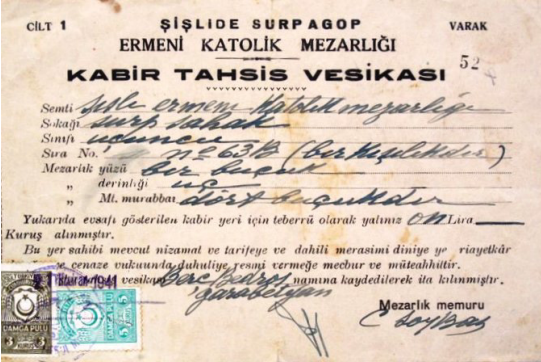 CİLT 1
ŞİŞLİDE SURPAGOP
VARAK
ERMENİ KATOLİK MEZARLIĞI
52
KABİR TAHSİS VESİKASI
Semti şişli ermeni Katolik mezarlığı
Sokağı surp sahak
Sınıfı üçüncü
Sıra No. No 63B (bir kişilikdir)
Mezarlık yüzü bir buçuk
„ derinliği üç
„ Mt. murabbaı dört buçukdur
Yukarıda evsafı gösterilen kabir yeri için teberrü olarak yalınız on Lira
Kuruş alınmıştır.
Bu yer sahibi mevcut nizamat ve tarifeye ve dahili merasimi diniye ye riayetkâr
ve cenaze vukuunda duhuliye resmi vermeğe mecbur ve müteahhittir.
1941
vesika Garabetyan namına kaydedilerek ita kılınmıştır.
Mezarlık memuru
DAMGA PULU
3 3
5 5